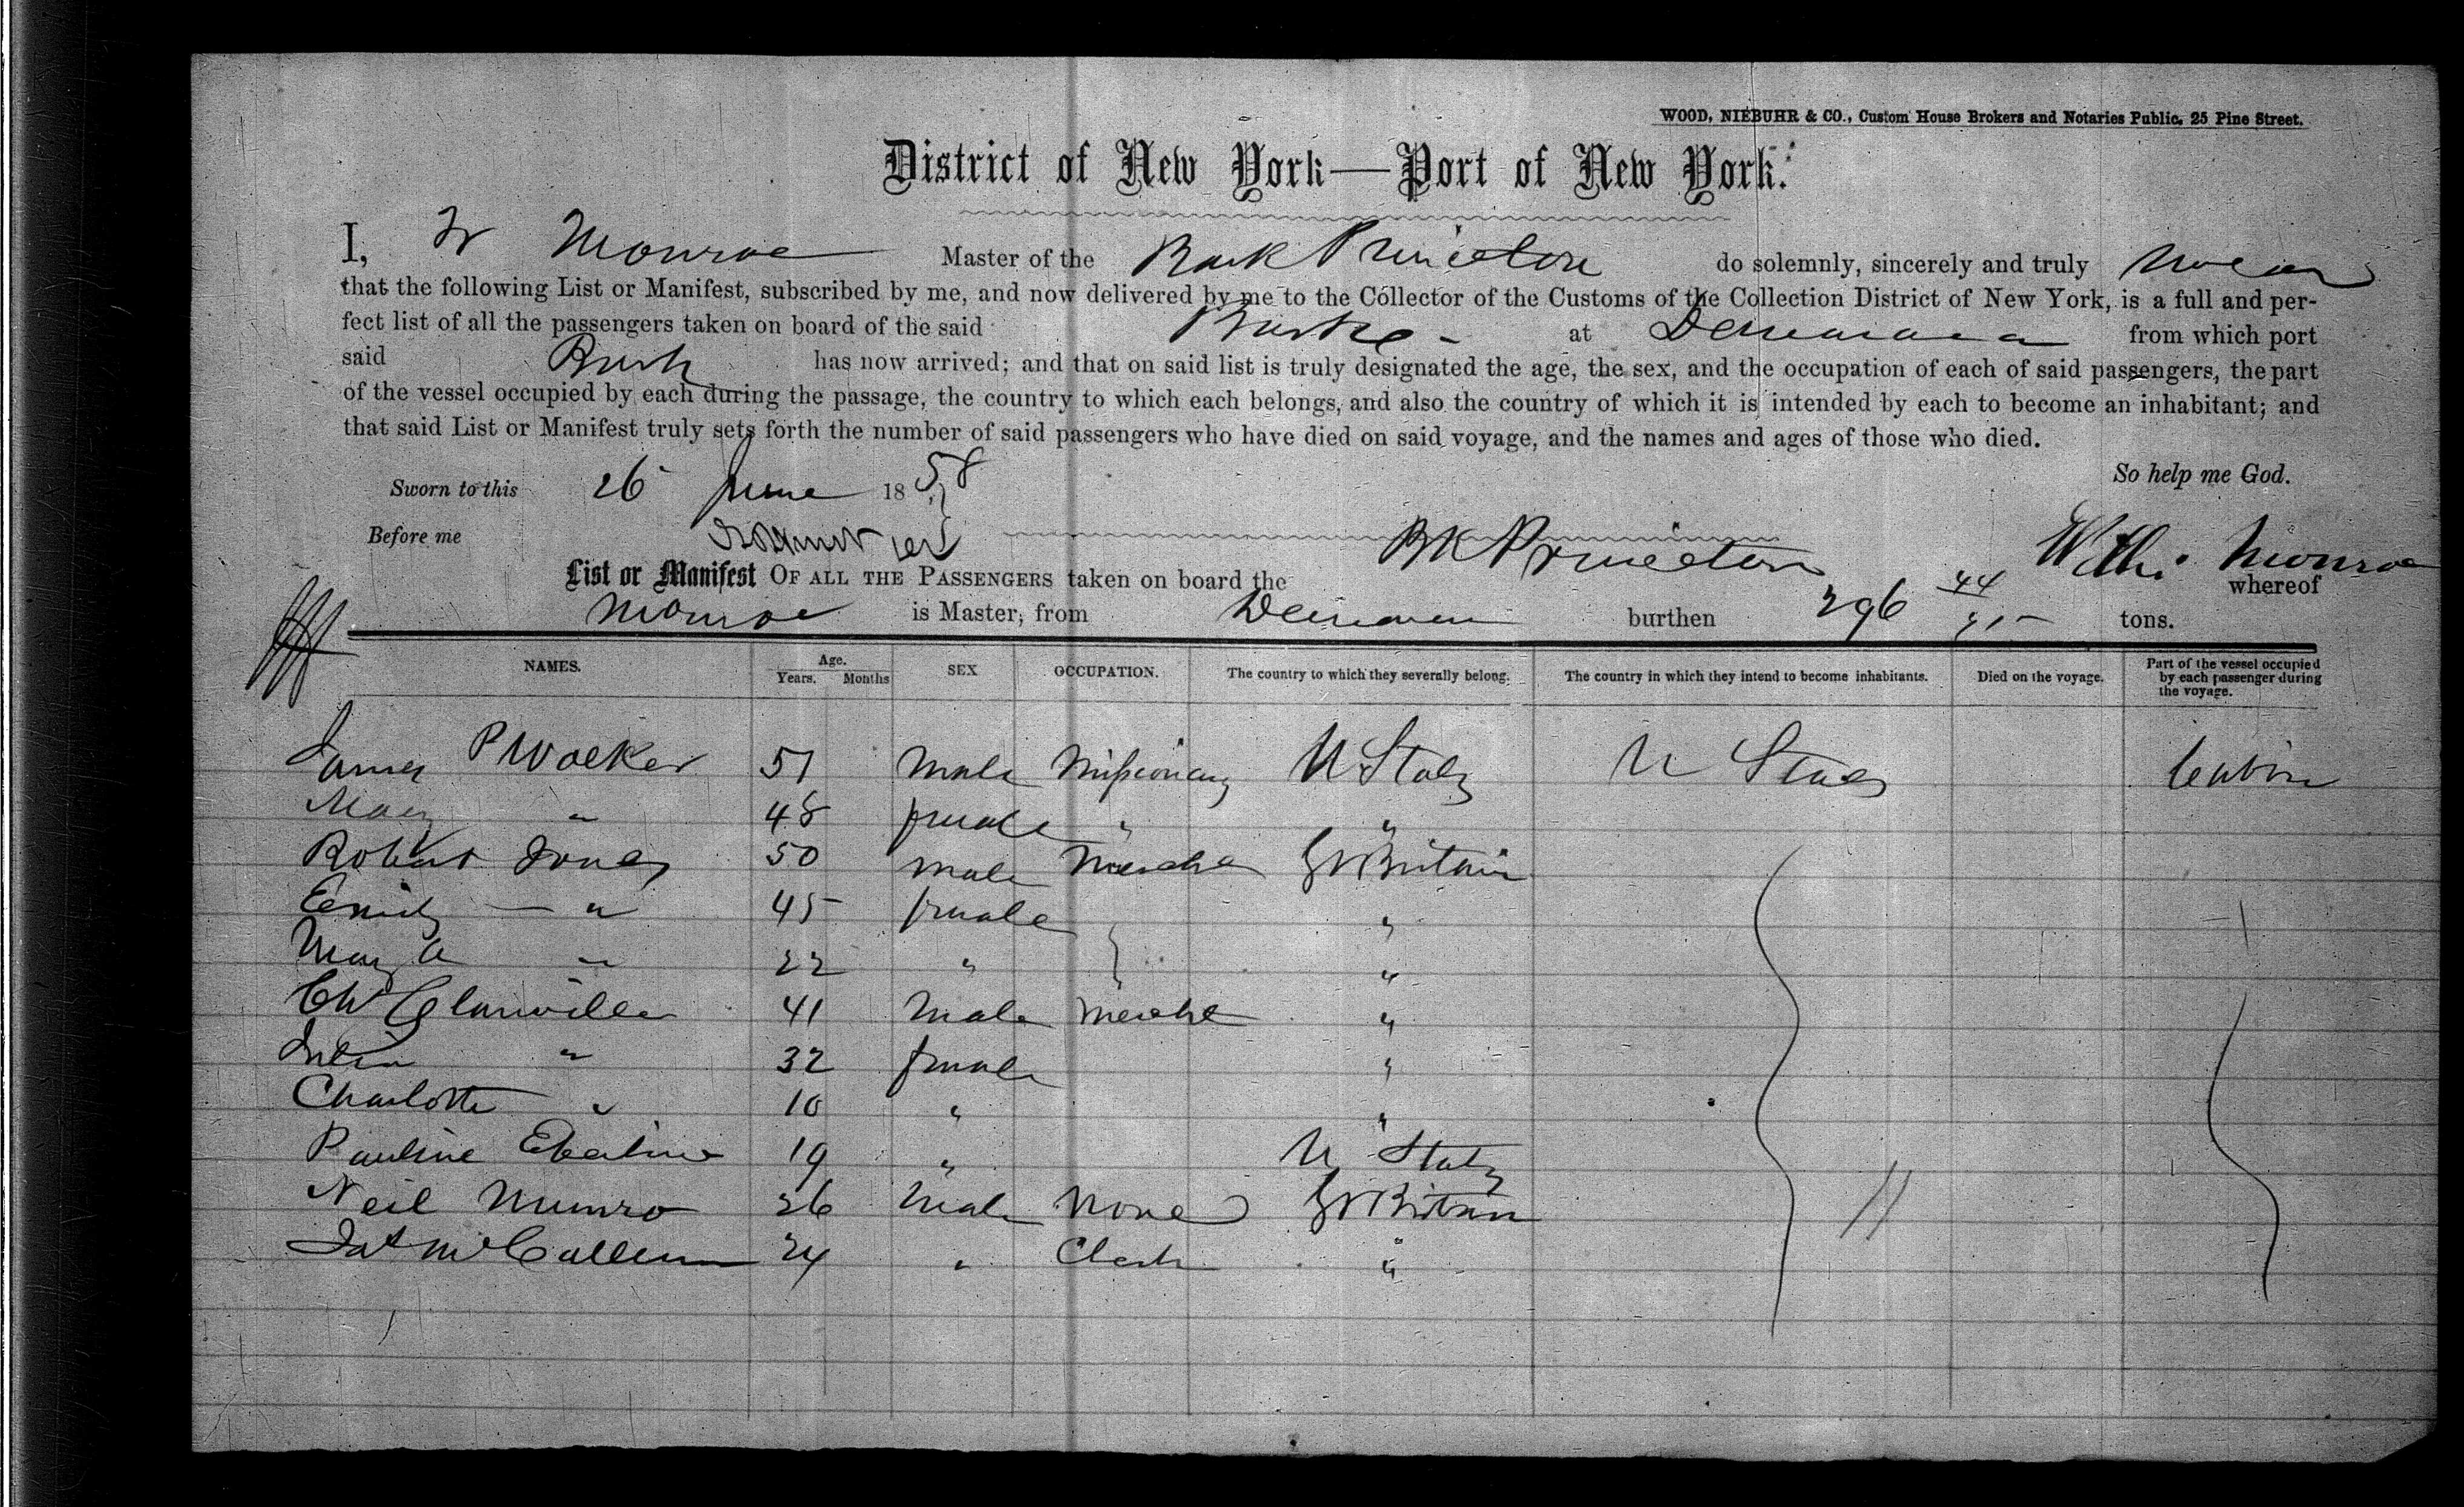 WOOD, NIEBUHR & CO., Custom House Brokers and Notaries Public, 25 Pine Street.
District of New York—Port of New York.
I, W Monroe Master of the Bark Princeton do solemnly, sincerely and truly swear
that the following List or Manifest, subscribed by me, and now delivered by me to the Collector of the Customs of the Collection District of New York, is a full and per-
fect list of all the passengers taken on board of the said Barke at Demarara from which port
said Bark has now arrived; and that on said list is truly designated the age, the sex, and the occupation of each of said passengers, the part
of the vessel occupied by each during the passage, the country to which each belongs, and also the country of which it is intended by each to become an inhabitant; and
that said List or Manifest truly sets forth the number of said passengers who have died on said voyage, and the names and ages of those who died.
So help me God.
Sworn to this 26 June 1858
Before me
Monroe
List or Manifest OF ALL THE PASSENGERS taken on board the Bk Princeton whereof
Monroe is Master, from burthen 296 44/95 tons.
NAMES. Age. Years. Months SEX OCCUPATION. The country to which they severally belong. The country in which they intend to become inhabitants. Died on the voyage. Part of the vessel occupied by each passenger during the voyage.
James P Walker 51 Male Missionary U States U States Cabin
Mary " 48 female " "
Robert Jones 50 Male Mercht Gt Britain
Emily — " 45 female "
Mary A " 22 " "
CW Glanville 41 Male Mercht "
" 32 female "
Charlotte " 10 " "
Pauline 19 " U States
Neil Munro 26 Male None Gt Britain
Jas McCallum 24 " Clerk "